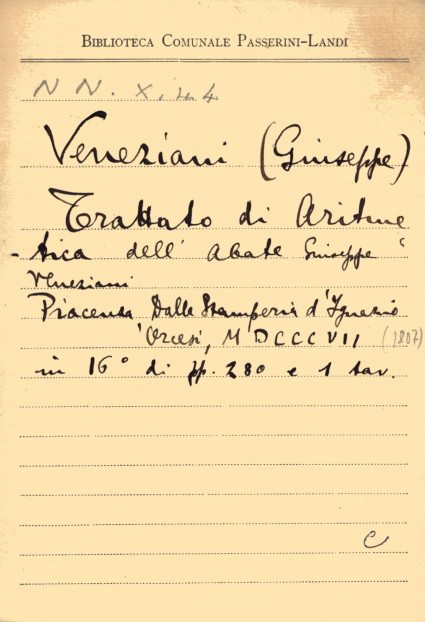 BIBLIOTECA COMUNALE PASSERINI-LANDI
N N. X. 44
Veneziani (Giuseppe)
Trattato di Aritme
-tica dell' Abate Giuseppe
Veneziani
Piacenza Dalla Stamperia d'Ignazio
Orcesi, MDCCCVII (1807)
in 16° di pp. 280 e 1 tav.
C